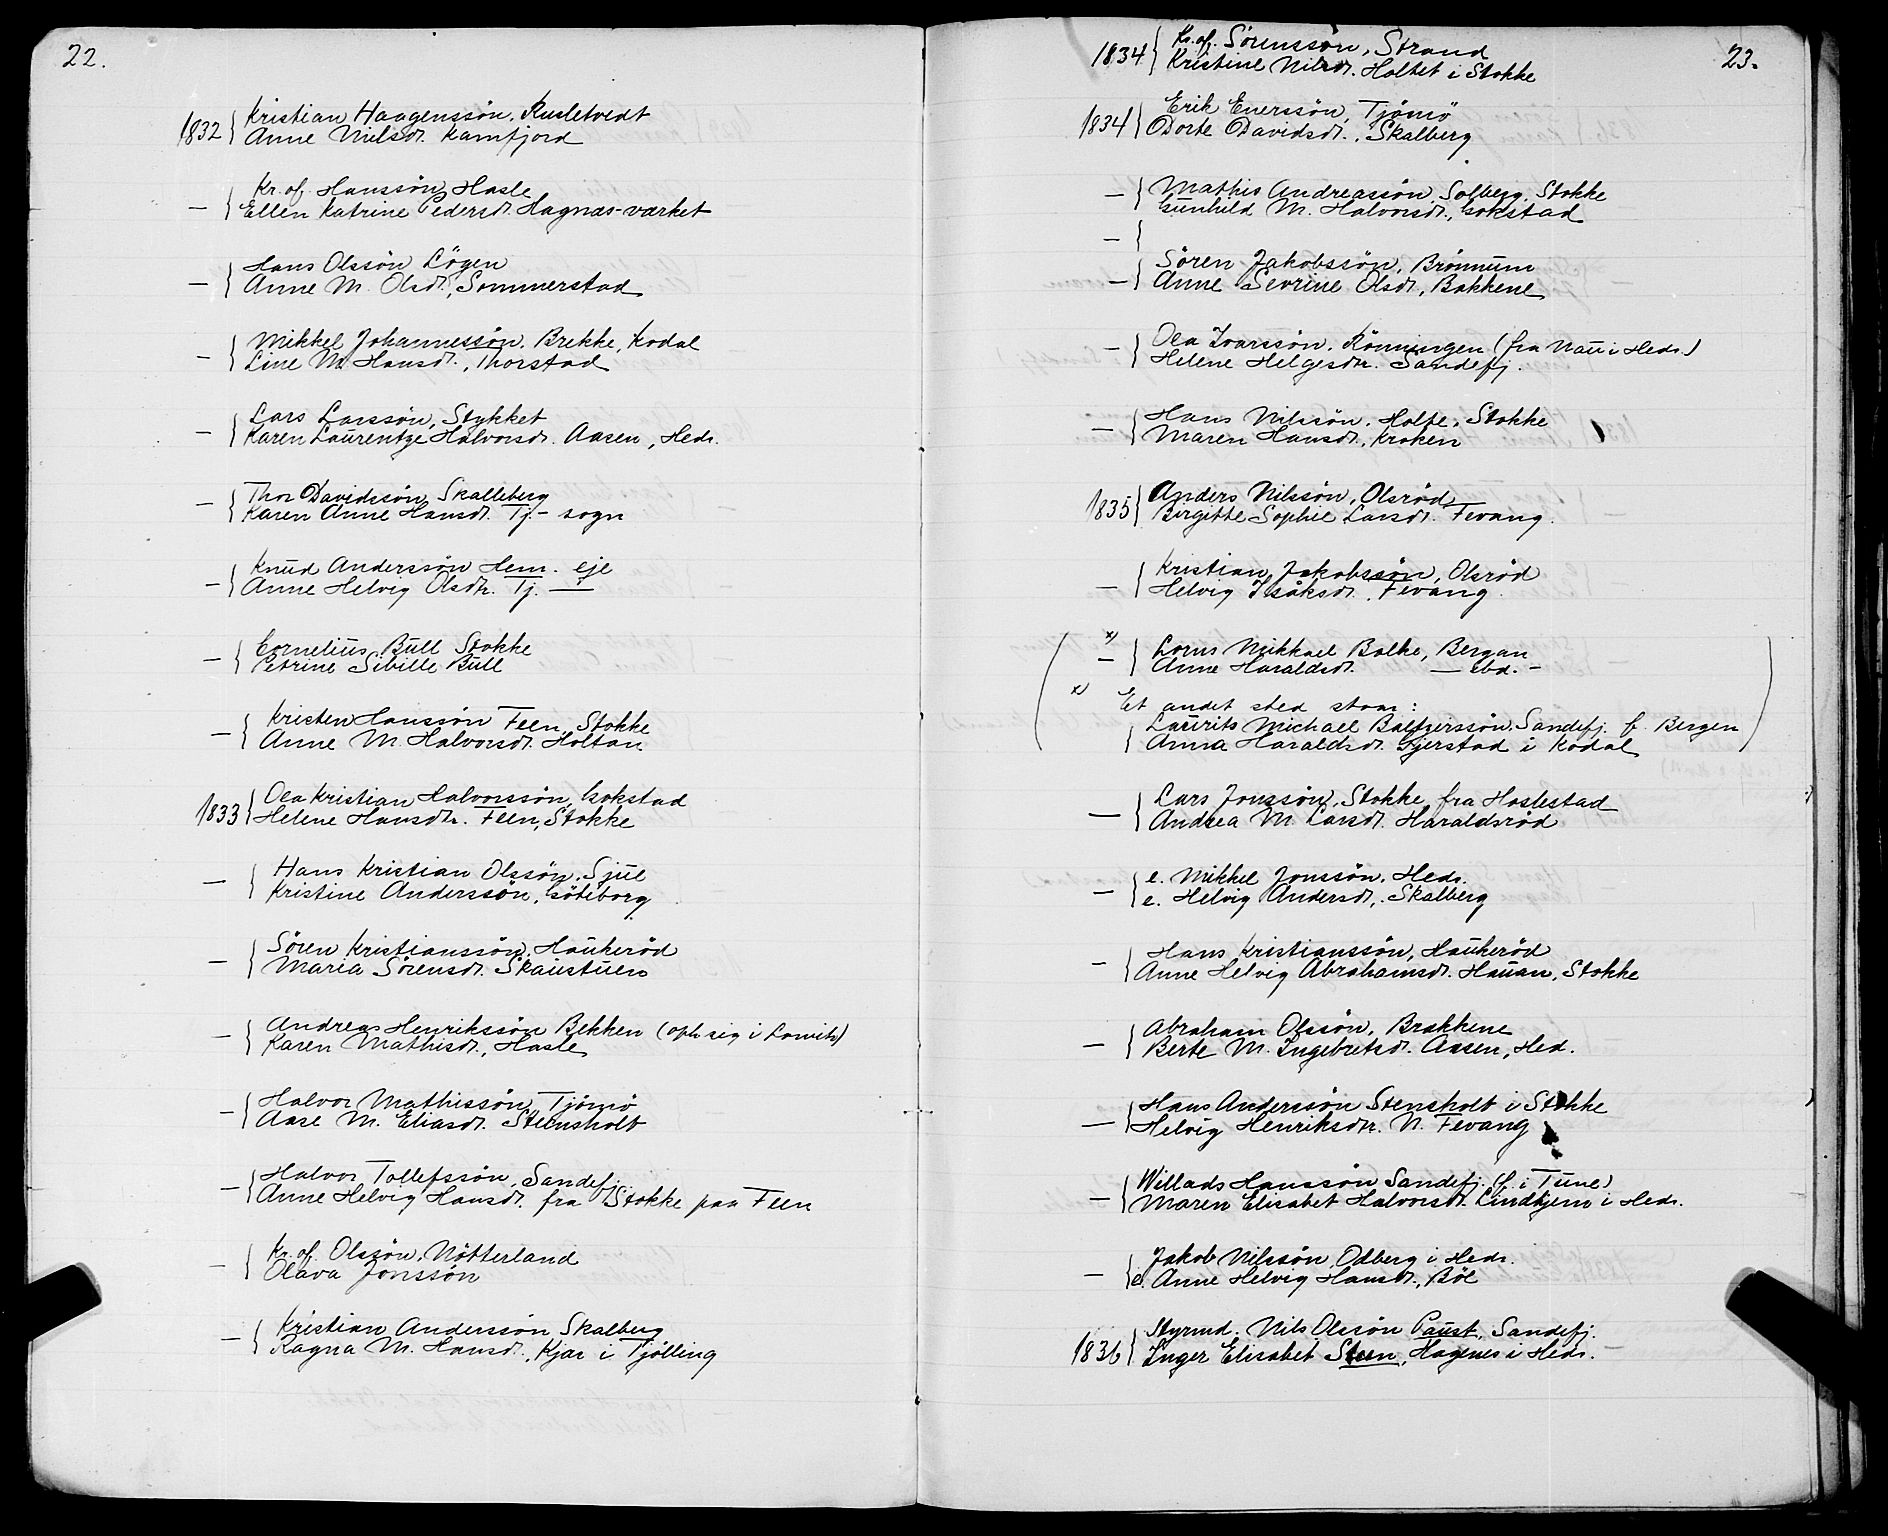 22.
1832 { Kristian Haagenssön, Rusletvedt
Anne Nielsdt. Kamfjord
— { Kr. of. Hanssön, Hasle
Ellen Katrine Pedersdt. Hagnæs-værket
— { Hans Olssön Lögen
Anne M. Olsdt., Sommerstad
— { Mikkel Johannessön, Brekke, Kodal
Line M. Hansdt., Thorstad
— { Lars Larssön, Stykket
Karen Laurentze Halvorsdt. Aasen, Hedr.
— { Thor Davidssön, Skalleberg
Karen Anne Hansdt. Tj.- sogn
— { Knud Anderssön Hem. eje
Anne Helvig Olsdtr. Tj. —"—
— { Cornelius Bull Stokke
Petrine Sibille Bull
— { Kristen Hanssön Feen, Stokke
Anne M. Halvorsdt. Holtan
1833 { Ola Kristian Halvorssön, Gokstad
Helene Hansdtr. Feen, Stokke
— { Hans Kristian Olssön, Sjue
Kristine Anderssön, Göteborg
— { Sören Kristianssön, Haukeröd
Maria Sörensdt. Skaustuen
— { Andreas Henrikssön Bekken (oph. sig i)
Karen Mathisdt., Hasle
— { Halvor Mathissön, Tjömö
Aase M. Eliasdt. Steinsholt
— { Halvor Tollefssön, Sandefj.
Anne Helvig Hansdt. fra Stokke paa Feen
— { Kr. of. Olssön, Nötterland
Olava Jonssön
— { Kristian Anderssön Skalberg
Ragna M. Hansdt., Kjær i Tjölling
23.
1834 { Kr. of. Sörenssön, Strand
Kristine Nilsdt. Holtet i Stokke
1834 { Erik Enerssön, Tjömö
Dorte Davidsdt., Skalberg
— { Mathis Andreassön, Solberg, Stokke
Gunhild M. Halvorsdt., Gokstad
— {
— { Sören Jakobssön, Brönnum
Anne Sevrine Olsdt, Bakkene
— { Ola Ivarssön, Rönningen (fra Nau i Hedr.)
Helene Helgesdtr. Sandefj.
— { Hans Nilssön, Holte, Stokke
Maren Hansdt., Kroken
1835 { Anders Nilssön, Olsröd,
Birgitte Sophie Larsdt. Fevang.
— { Kristian Jakobssön, Olsröd
Helvig Isaksdt., Fevang.
x) — { Lorns Mikkael Balke, Bergan
Anne Haraldsdt. — ibd. —
x) Et andet sted staar:
{ Laurits Michael Baltzerssön, Sandefj. f. Bergen
Anna Haraldsdt. Gjerstad i Kodal
— { Lars Jonssön, Stokke, fra Haslestad
Andrea M. Larsdt. Haraldsröd
— { e. Mikkel Jonssön, Hedr.
e. Helvig Andersdt., Skalberg
— { Hans Kristianssön, Haukeröd
Anne Helvig Abrahamsdt. Hauan, Stokke
— { Abraham Olssön, Brakkene
Berte M. Ingebretsdt. Aasen, Hed.
— { Hans Anderssön Stensholt i Stokke
Helvig Henriksdtr. N. Fevang
— { Willads Hanssön Sandefj. (f. i Tune)
Maren Elisabet Halvorsdt. Lindhjem i Hedr.
— { Jakob Nilssön, Odberg i Hedr.
e. Anne Helvig Hansdt., Böe
1836 { Styrmd. Nils Olssön Paust, Sandefj.
Inger Elisabet Steen, Hagenes i Hedr.